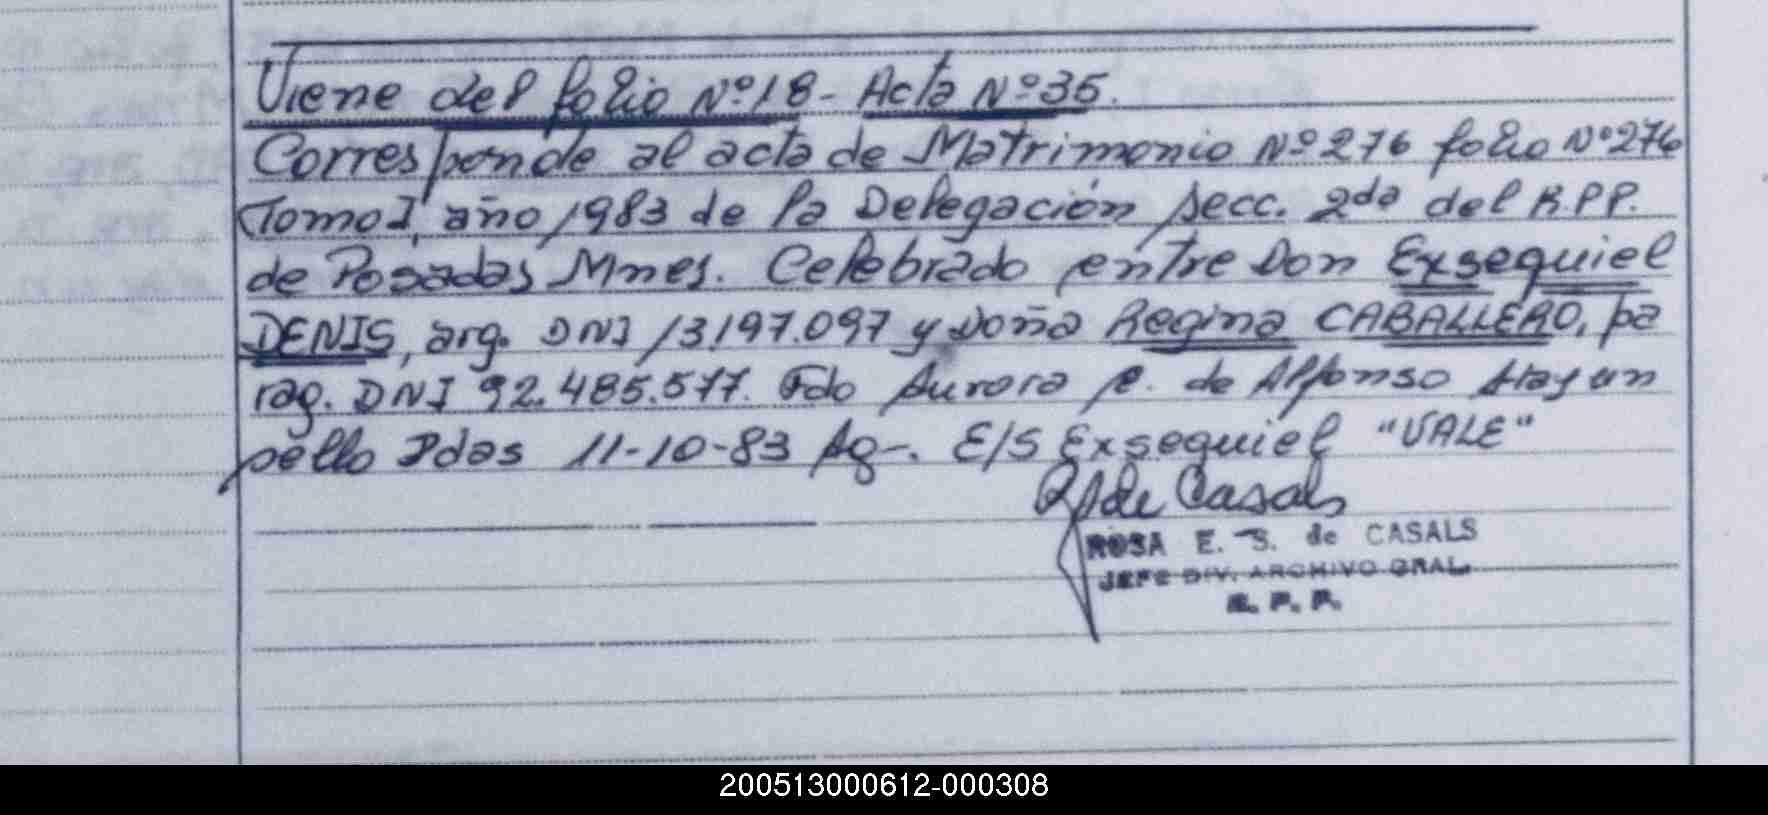 Viene del folio Nº 18 - Acta Nº 35.
Corresponde al acta de Matrimonio Nº 276 folio Nº 276
Tomo I, año 1983 de la Delegación secc. 2da del R.P.P.
de Posadas Mnes. Celebrado entre Don Exsequiel
DENIS, arg. DNI 13.197.097 y Doña Regina CABALLERO, pa
rag. DNI 92.485.577. Fdo Aurora P. de Alfonso Hay un
sello Pdas 11-10-83 Ag-. E/S Exsequiel "VALE"
de Casals
ROSA E. S. de CASALS
JEFE DIV. ARCHIVO GRAL.
R. P. P.
200513000612-000308